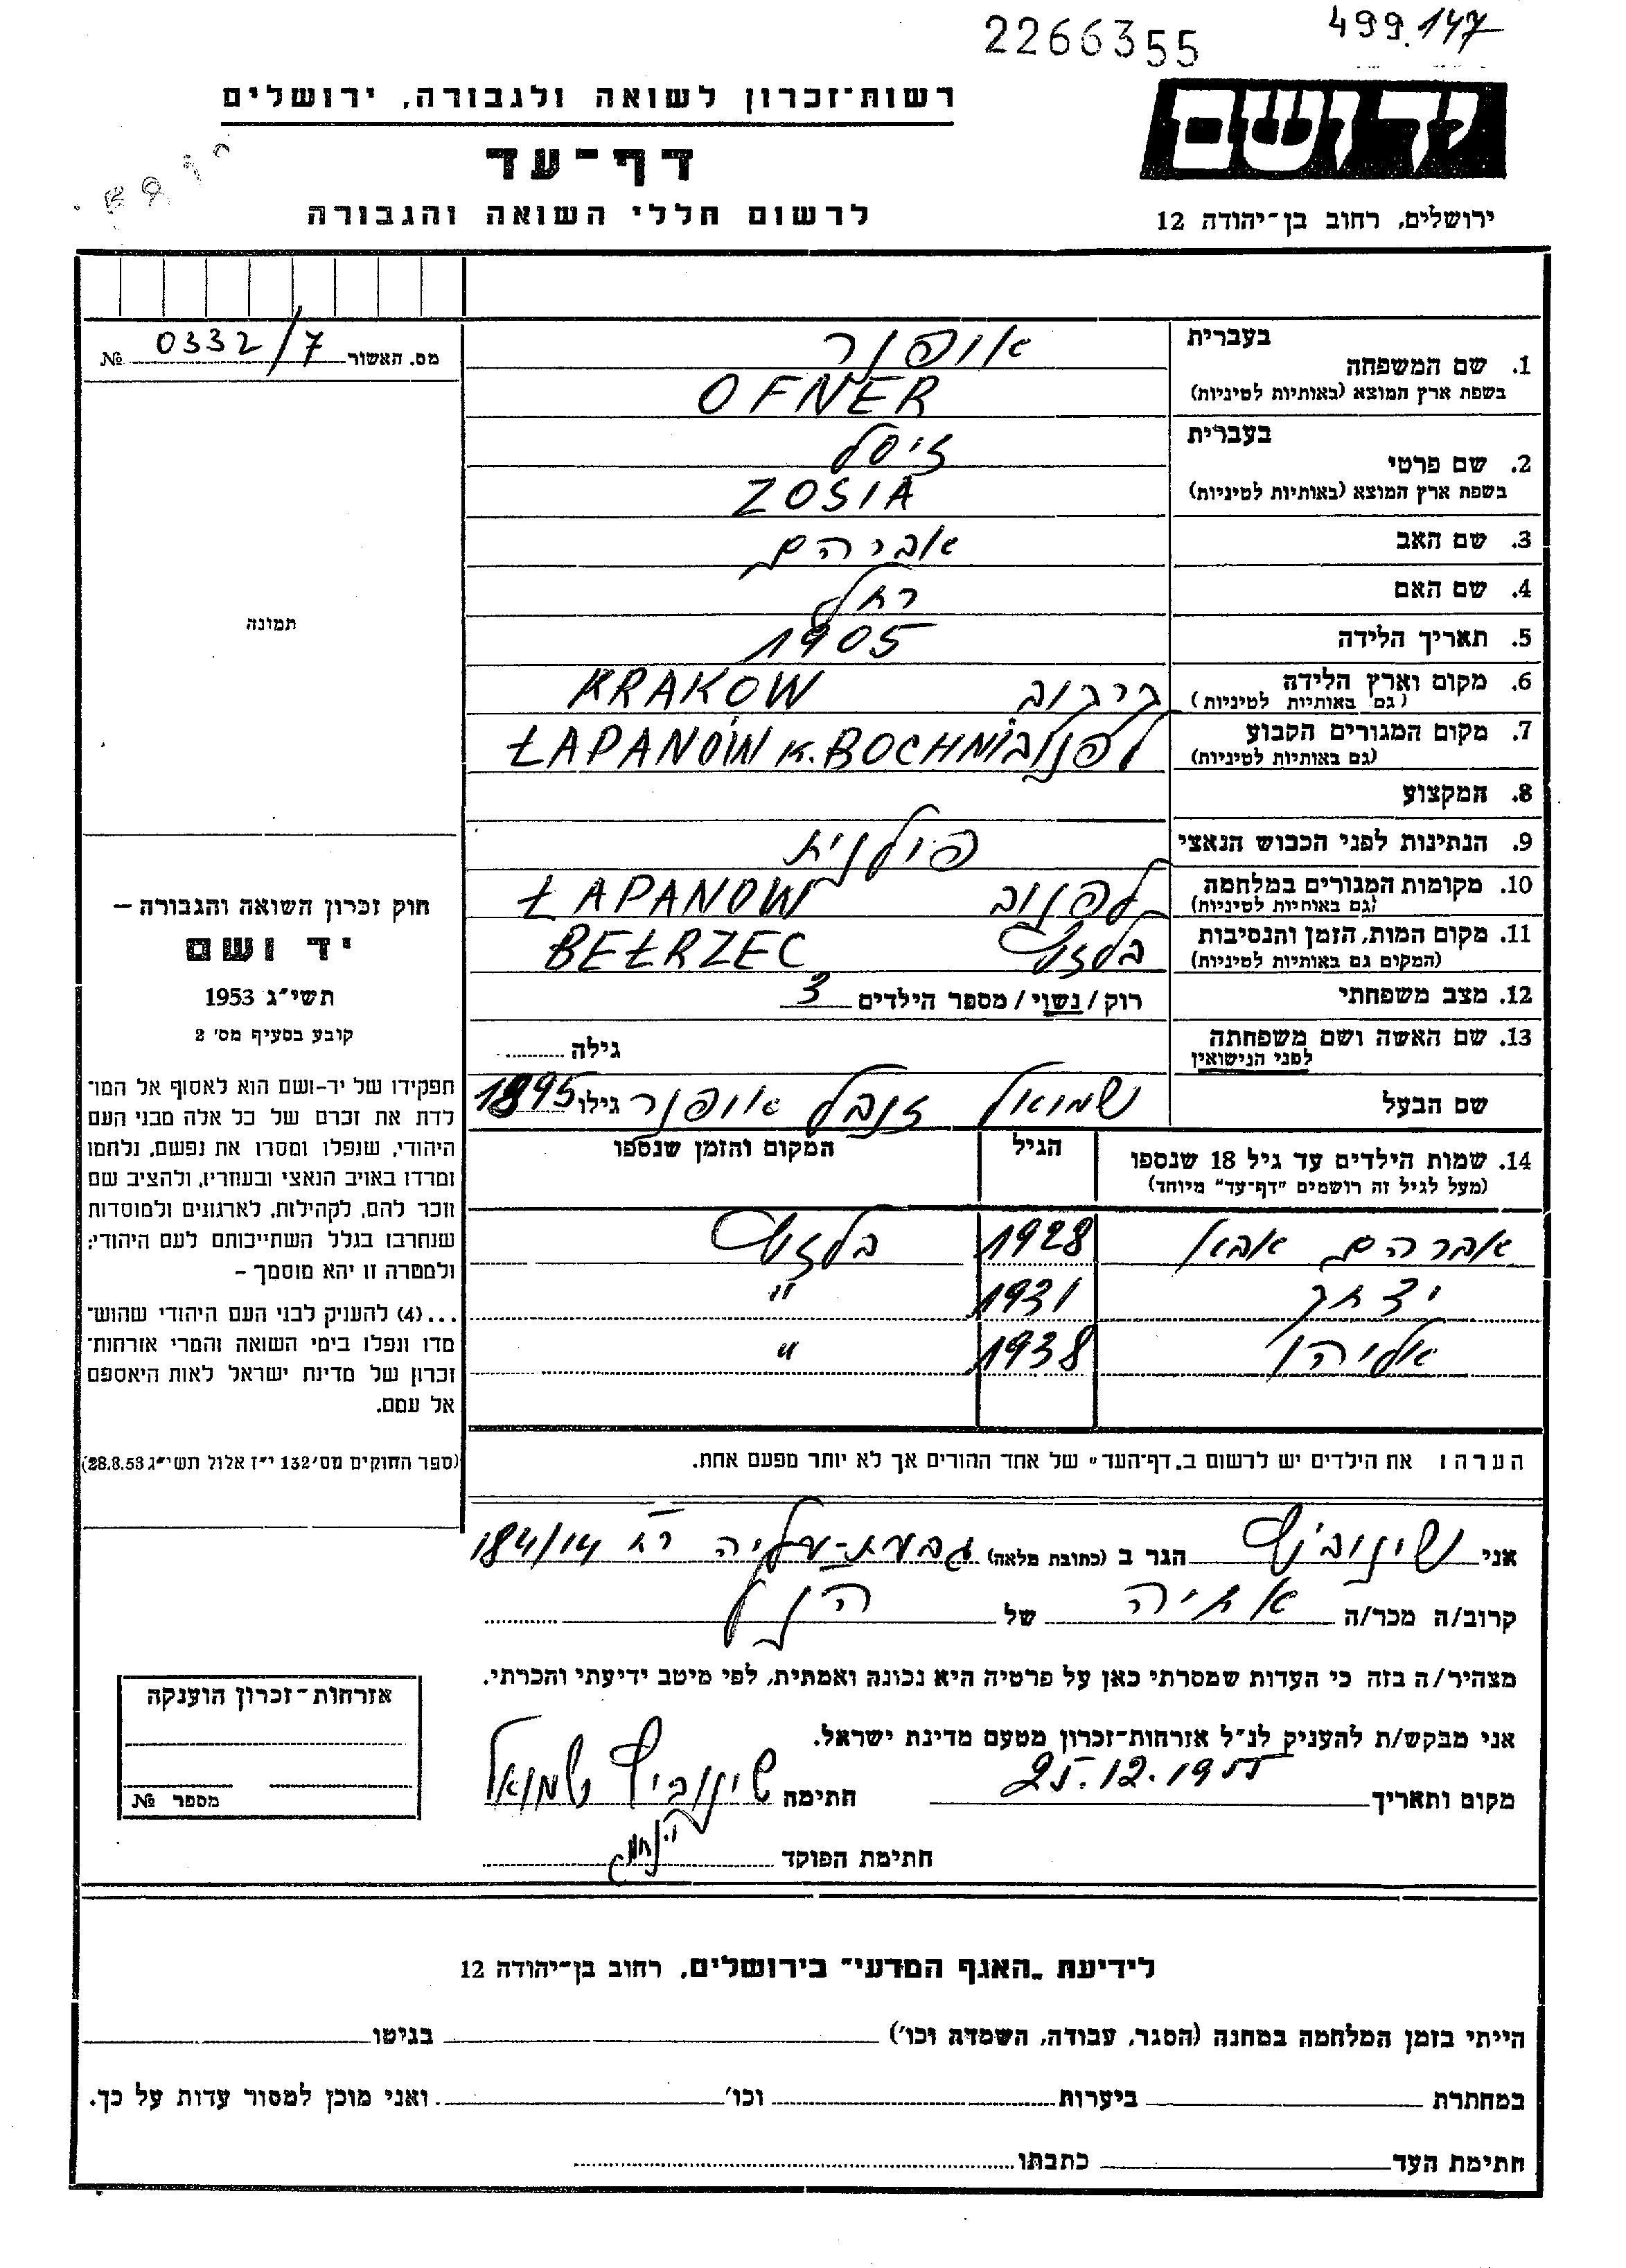 2266355
499.147
יד ושם
רשות־זכרון לשואה ולגבורה, ירושלים
דף־עד
ירושלים, רחוב בן־יהודה 12
לרשום חללי השואה והגבורה
מס. האשור 0332/7 №
תמונה
1. שם המשפחה
בעברית אופנר
בשפת ארץ המוצא (באותיות לטיניות) OFNER
2. שם פרטי
בעברית זיסל
בשפת ארץ המוצא (באותיות לטיניות) ZOSIA
3. שם האב
אברהם
4. שם האם
רחל
5. תאריך הלידה 1905
6. מקום וארץ הלידה
(גם באותיות לטיניות) KRAKOW
7. מקום המגורים הקבוע
(גם באותיות לטיניות) לפנוב ŁAPANÓW K. BOCHNI
8. המקצוע
9. הנתינות לפני הכבוש הנאצי פולנית
10. מקומות המגורים במלחמה
(גם באותיות לטיניות) לפנוב ŁAPANOW
11. מקום המות, הזמן והנסיבות
(המקום גם באותיות לטיניות) בלזץ BEŁRZEC
12. מצב משפחתי רוק / נשוי / מספר הילדים 3
13. שם האשה ושם משפחתה
לפני הנישואין
גילה
שם הבעל שמואל זנבל אופנר גילו 1895
14. שמות הילדים עד גיל 18 שנספו
(מעל לגיל זה רושמים "דף־עד" מיוחד)
הגיל
המקום והזמן שנספו
אברהם אבא 1928 בלזץ
יצחק 1931 "
אליהו 1938 "
הערה: את הילדים יש לרשום ב„דף־העד" של אחד ההורים אך לא יותר מפעם אחת.
חוק זכרון השואה והגבורה –
יד ושם
תשי"ג 1953
קובע בסעיף מס' 2
תפקידו של יד-ושם הוא לאסוף אל המו־
לדת את זכרם של כל אלה מבני העם
היהודי, שנפלו ומסרו את נפשם, נלחמו
ומרדו באויב הנאצי ובעוזריו, ולהציב שם
וזכר להם, לקהילות, לארגונים ולמוסדות
שנחרבו בגלל השתייכותם לעם היהודי;
ולמטרה זו יהא מוסמך –
...(4) להעניק לבני העם היהודי שהוש־
מדו ונפלו בימי השואה והמרי אזרחות־
זכרון של מדינת ישראל לאות היאספם
אל עמם.
(ספר החוקים מס' 132 י"ז אלול תשי"ג 28.8.53)
אני שינוביץ הגר ב (כתובת מלאה) גבעת-עליה רח 184/14
קרוב/ה מכר/ה של הנ"ל
מצהיר/ה בזה כי העדות שמסרתי כאן על פרטיה היא נכונה ואמתית, לפי מיטב ידיעתי והכרתי.
אני מבקש/ת להעניק לנ"ל אזרחות־זכרון מטעם מדינת ישראל.
מקום ותאריך 25.12.1955 חתימה שינוביץ שמואל
חתימת הפוקד
אזרחות־זכרון הוענקה
מספר №
לידיעת „האגף המדעי" בירושלים, רחוב בן־יהודה 12
הייתי בזמן המלחמה במחנה (הסגר, עבודה, השמדה וכו') בגיטו
במחתרת ביערות וכו' ואני מוכן למסור עדות על כך.
חתימת העד כתבתו